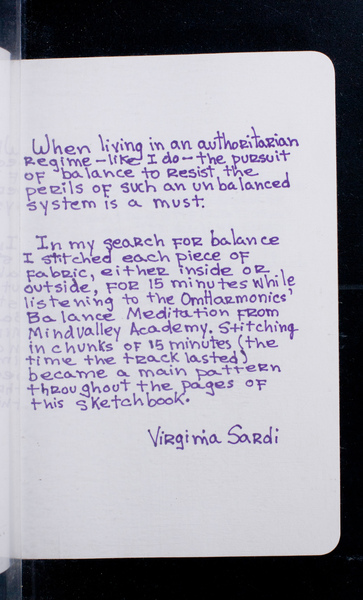 When living in an authoritarian
regime - like I do - the pursuit
of balance to resist the
perils of such an unbalanced
system is a must.
In my search for balance
I stitched each piece of
fabric, either inside or
outside, for 15 minutes while
listening to the OmHarmonics'
Balance Meditation from
Mindvalley Academy. Stitching
in chunks of 15 minutes (the
time the track lasted)
became a main pattern
throughout the pages of
this sketchbook.
Virginia Sardi